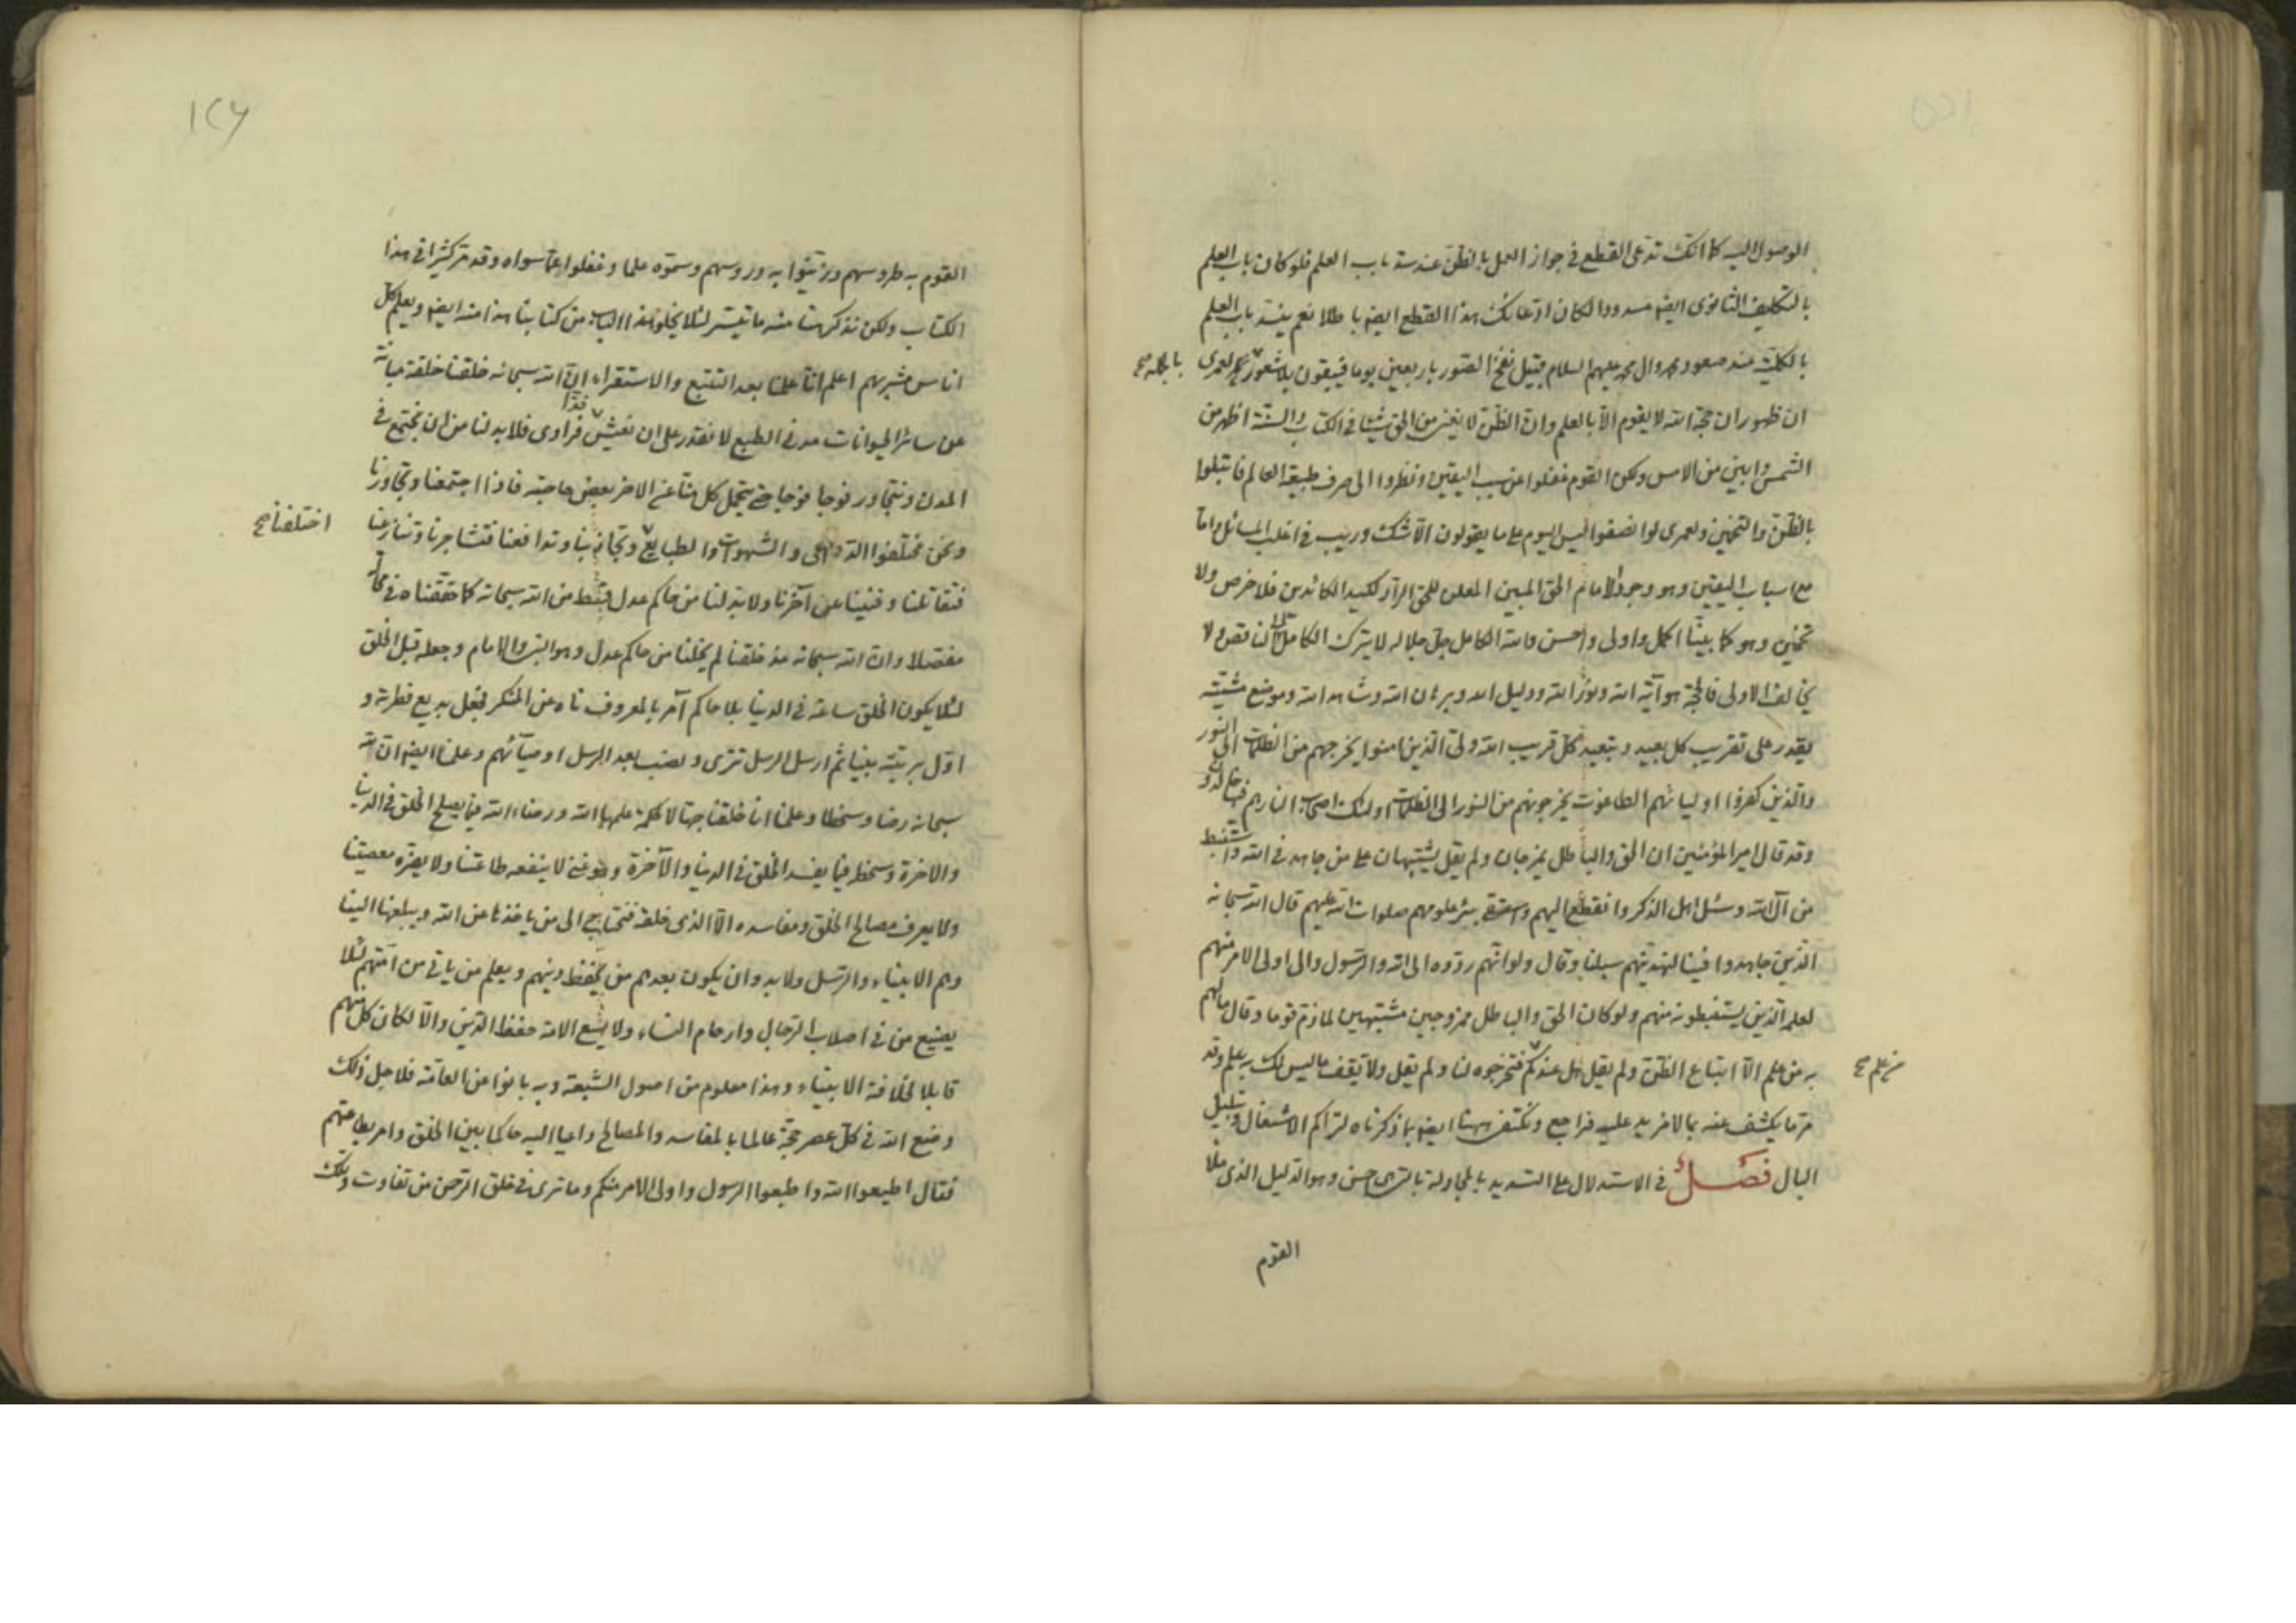 الوصول اليه كما انك تدعى القطع فى جواز العمل بالظن عند سد باب العلم فلو كان باب العلم
بالتكليف الثانوى ايضا مسدودا لكان ادعائك هذا القطع ايضا باطلا نعم ينسد باب العلم
بالكلية عند صعود محمد وال محمد عليهم السلام قبيل نفخ الصور باربعين يوما فيبقون بلا شعور لعمرى
بالجملة صح
ان ظهور ان حجة الله لا يقوم الا بالعلم وان الظن لا يغنى من الحق شيئا فى الكتاب والسنة اظهر من
الشمس وابين من الامس ولكن القوم غفلوا عن سبب اليقين ونظروا الى صرف طبيعة العالم فابتلوا
بالظن والتخمين ولعمرى لو انصفوا ليس اليوم على ما يقولون الا شك وريب فى اغلب المسائل واما
مع اسباب اليقين وهو وجود الامام الحق المبين المعلن للحق الراد لكيد الكائدين فلا خرص ولا
تخمين وهو كما بينا اكمل واولى واحسن والله الكامل جل جلاله لا يترك الكامل الى الناقص ولا
يخالف الاولى فالحجة هو آية الله ونور الله ودليل الله وبرهان الله وشاهد الله وموضع مشيته
يقدر على تقريب كل بعيد وتبعيد كل قريب الله ولى الذين امنوا يخرجهم من الظلمات الى النور
والذين كفروا اوليائهم الطاغوت يخرجونهم من النور الى الظلمات اولئك اصحاب النار هم فيها خالدون
وقد قال امير المؤمنين ان الحق والباطل يمزجان ولم يقل يشتبهان على من جاهد فى الله واستنبط
من آل الله وسئل اهل الذكر وانقطع اليهم بنشر علومهم صلوات الله عليهم قال الله سبحانه
الذين جاهدوا فينا لنهدينهم سبلنا وقال ولو انهم ردوه الى الله والرسول والى اولى الامر منهم
لعلمه الذين يستنبطونه منهم ولو كان الحق والباطل ممزوجين مشتبهين لما ذم قوما وقال ما لهم
به من علم الا اتباع الظن ولم يقل هل عندكم فتخرجوه لنا ولم يقل ولا تقف ما ليس لك به علم وقد
من علم صح
مر ما يكشف عنه بما لا مزيد عليه فراجع ونكتفى ههنا ايضا بما ذكرناه لتراكم الاشغال وتبلبل
البال فصل فى الاستدلال على التسديد بالمجادلة بالتى هى احسن وهو الدليل الذى ملأ
القوم
١٢٦
القوم به طروسهم وزينوا به دروسهم وسموه علما وغفلوا عما سواه وقد مر كثيرا فى هذا
الكتاب ولكن نذكر هنا منه ما تيسر لئلا يخلو هذا الباب من كتابنا هذا منه ايضا ويعلم كل
اناس مشربهم اعلم انا علمنا بعد التتبع والاستقراء ان الله سبحانه خلقنا خلقة مباينة
عن سائر الحيوانات مدنى الطبع لا نقدر على ان نعيش فرادى فلا بد لنا من ان نجتمع فى
المدن ونتجاور فوجا فوجا حتى يتحمل كل منا عن الاخر بعض حاجته فاذا اجتمعنا وتجاورنا
ونحن مختلفوا الدواعى والشهوات والطبايع وتجاذبنا وتدافعنا فتشاجرنا وتنازعنا
اختلفنا صح
فتقاتلنا وفنينا عن آخرنا ولا بد لنا من حاكم عدل قسط من الله سبحانه كما حققناه فى محله
مفصلا وان الله سبحانه منذ خلقنا لم يخلنا من حاكم عدل وهو النبى والامام وجعله قبل الخلق
لئلا يكون الخلق ساعة فى الدنيا بلا حاكم آمر بالمعروف ناه عن المنكر فجعل بديع فطرته و
اول بريته نبيا ثم ارسل الرسل تترى ونصب بعد الرسل اوصيائهم وعلمنا ايضا ان لله
سبحانه رضا وسخطا وعلمنا انا خلقنا جهالا لحكمة علمها الله ورضاء الله فيما يصلح الخلق فى الدنيا
والاخرة وسخطه فيما يفسد الخلق فى الدنيا والآخرة وهو غنى لا ينفعه طاعتنا ولا يضره معصيتنا
ولا يعرف مصالح الخلق ومفاسده الا الذى خلقه فنحتاج الى من ياخذها عن الله ويبلغها الينا
وهم الانبياء والرسل ولا بد وان يكون بعدهم من يحفظ دينهم ويعلم من ياتى من امتهم لئلا
يضيع من فى اصلاب الرجال وارحام النساء ولا يسع الامة حفظ الدين والا لكان كل منهم
قابلا لخلافة الانبياء وهذا معلوم من اصول الشيعة وبه بانوا عن العامة فلاجل ذلك
وضع الله فى كل عصر حجة عالما بالمفاسد والمصالح داعيا اليه حاكما بين الخلق وامر بطاعتهم
فقال اطيعوا الله واطيعوا الرسول واولى الامر منكم وما ترى فى خلق الرحمن من تفاوت وتلك